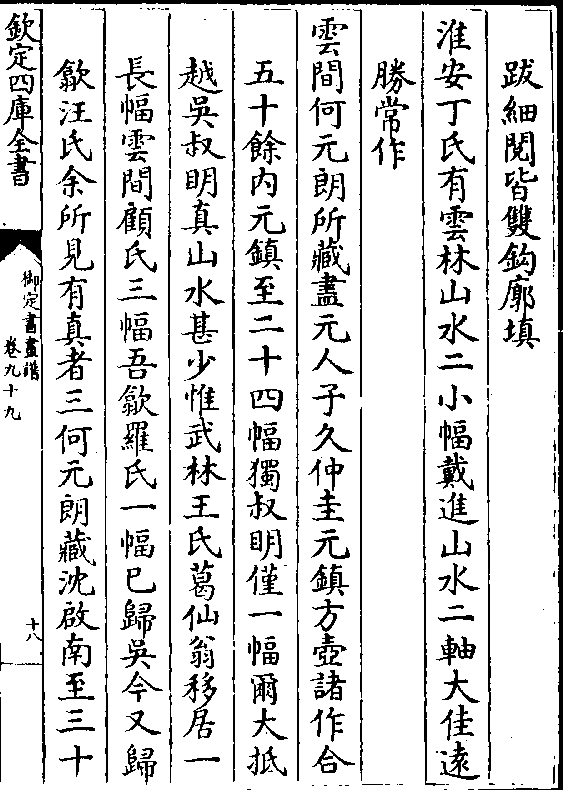 跋細閱皆雙鈎廓填
淮安丁氏有雲林山水二小幅戴進山水二軸大佳遠
勝常作
雲間何元朗所藏盡元人子久仲圭元鎮方壺諸作合
五十餘内元鎮至二十四幅獨叔明僅一幅爾大抵
越吳叔明真山水甚少惟武林王氏葛仙翁移居一
長幅雲間顧氏三幅吾歙羅氏一幅已歸吳今又歸
歙汪氏余所見有真者三何元朗藏沈啟南至三十
欽定四庫全書
御定書畫譜
卷九十九
十八